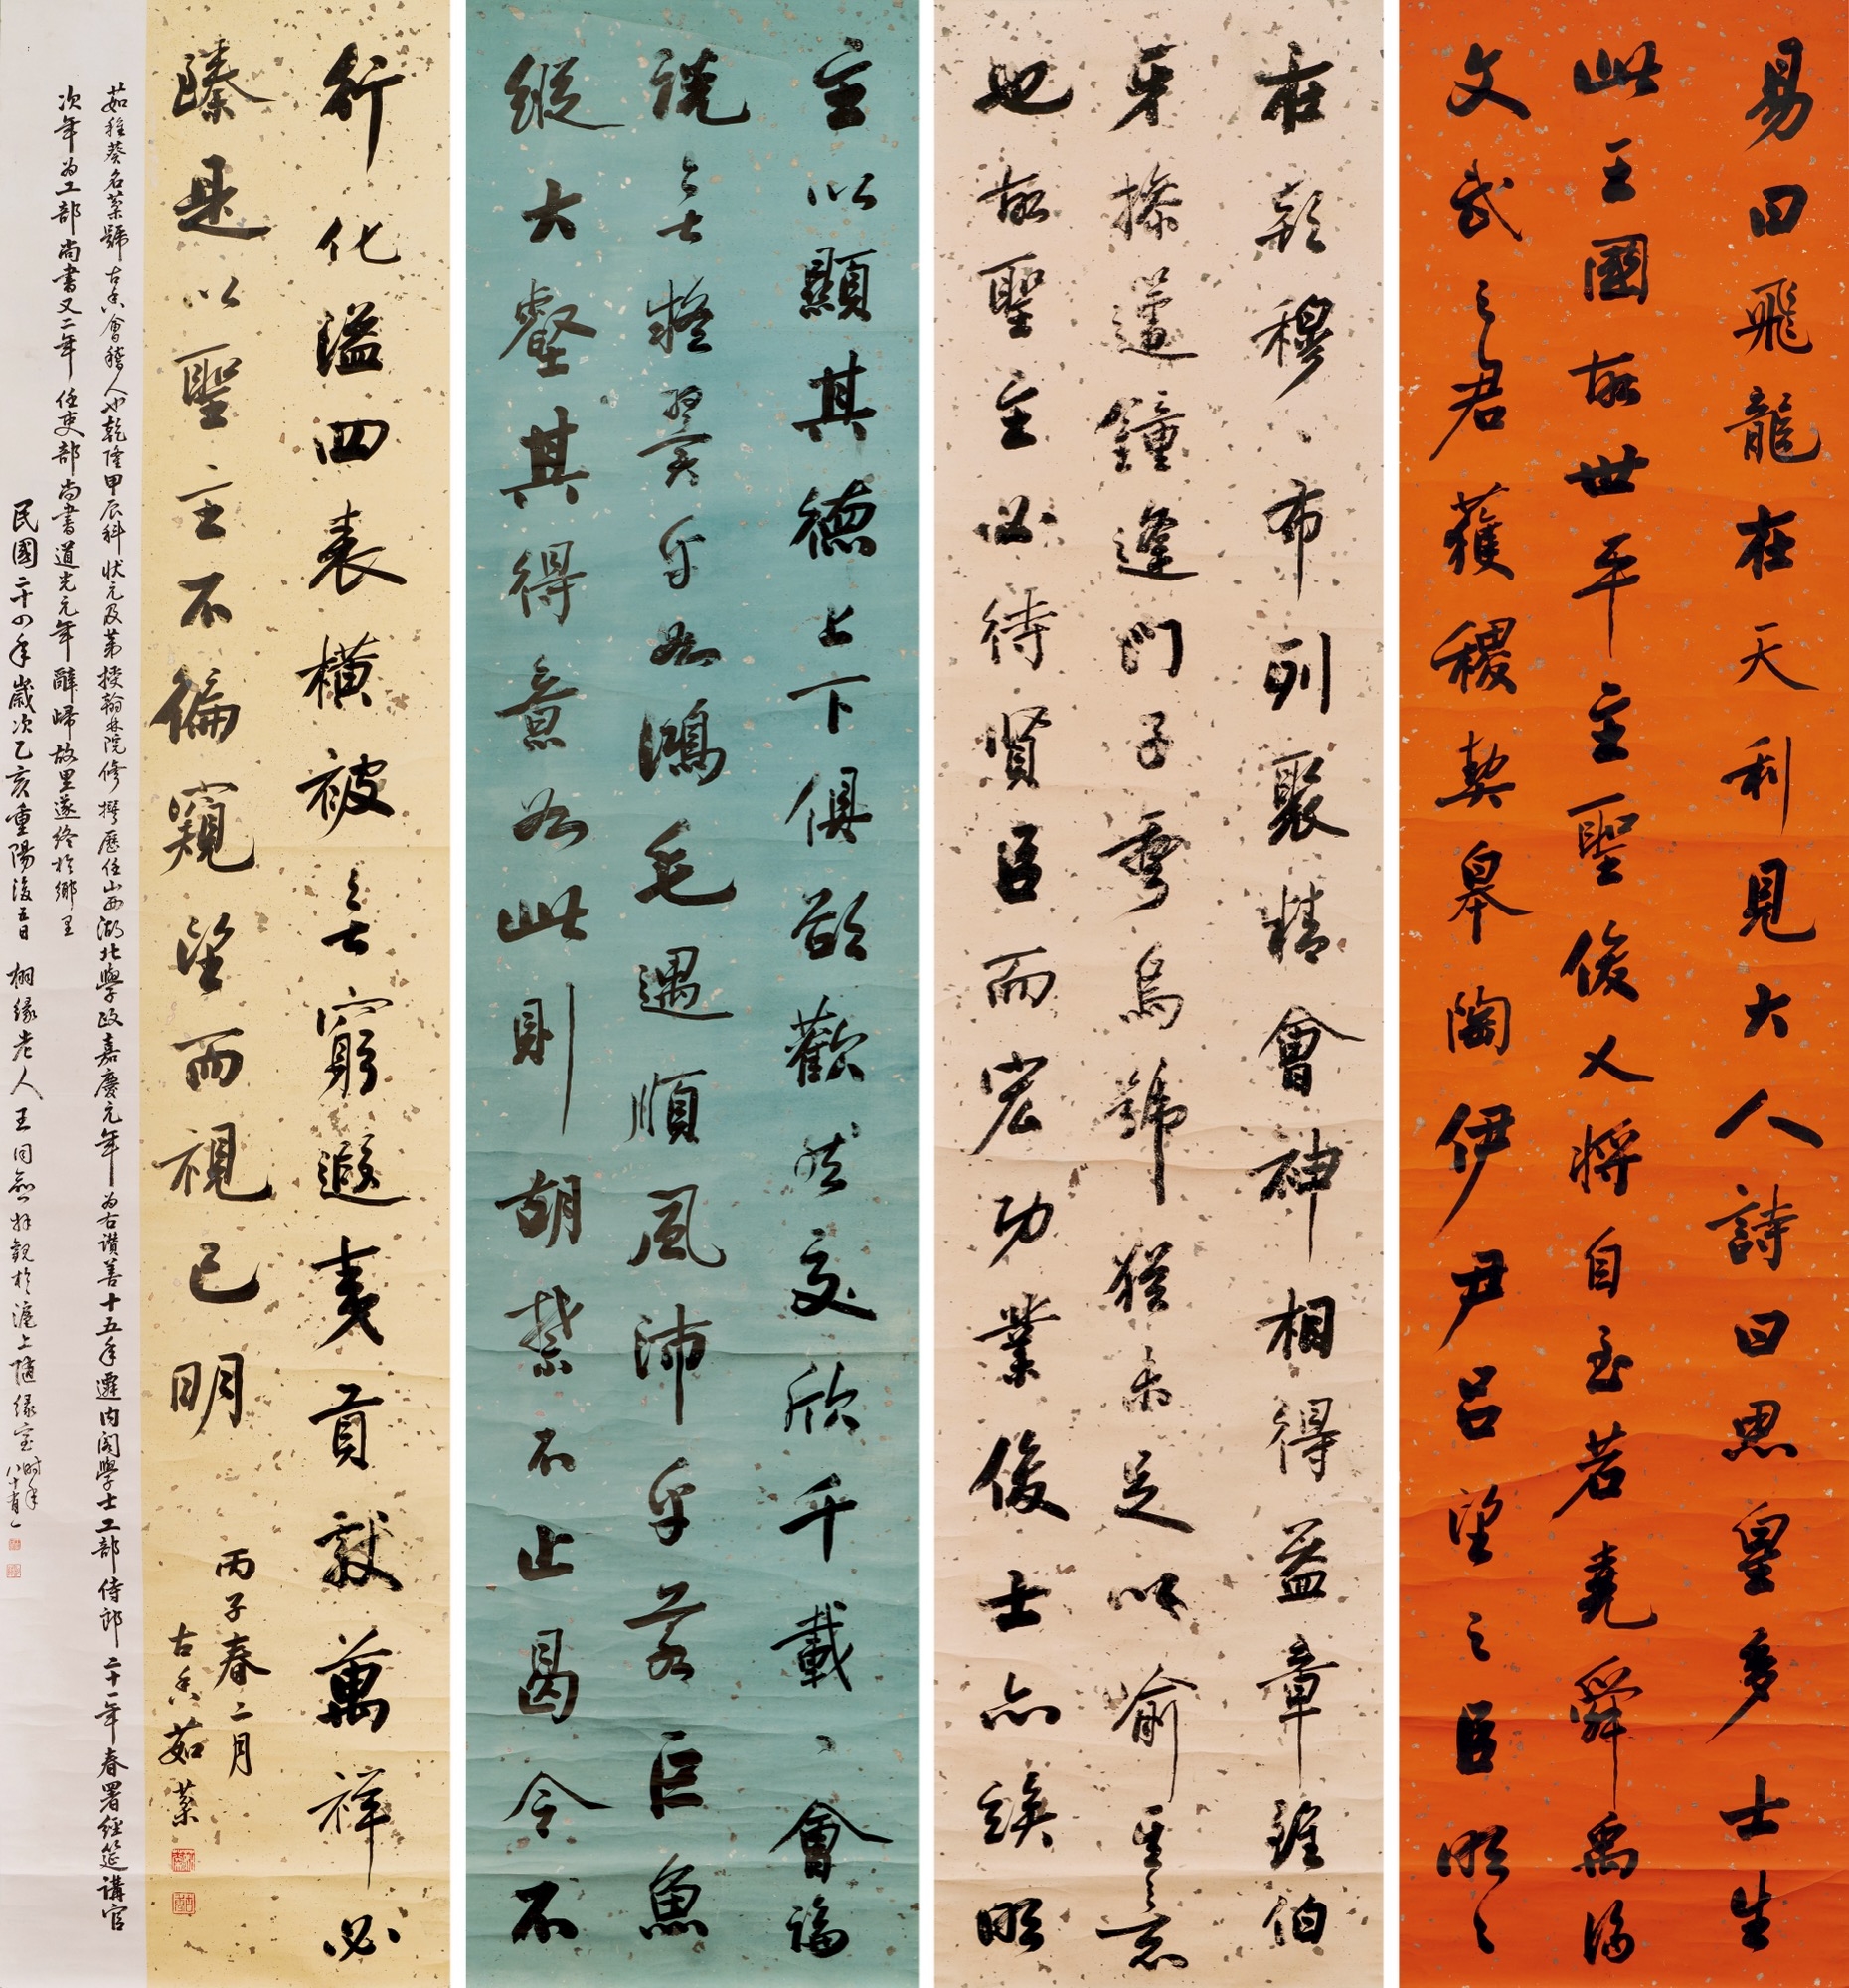 易曰飛龍在天利見大人詩曰思皇多士生
此王國故世平主聖俊乂將自至若堯舜禹湯
文武之君獲稷契皋陶伊尹呂望之臣明明
在朝穆穆布列聚精會神相得益章雖伯
牙操遞鐘逢門子彎烏號猶未足以喻其意
也故聖主必待賢臣而宏功業俊士亦俟明
主以顯其德上下俱欲歡然交欣千載一會論
說無疑翼乎如鴻毛遇順風沛乎若巨魚
縱大壑其得意如此則胡禁不止曷令不
行化溢四表橫被無窮遐夷貢獻萬祥必
臻是以聖主不徧窺望而視已明
丙子春二月
古香茹棻
茹稚葵名棻號古香會稽人也乾隆甲辰科狀元及第授翰林院修撰歷任山西湖北學政嘉慶元年為右讚善十五年遷内閣學士工部侍郎二十一年春署經筵講官
次年為工部尚書又二年任吏部尚書道光元年辭歸故里遂終於鄉里
民國二十四年歲次乙亥重陽後五日 栩緣老人王同愈拜觀於滬上隨緣室時年八十有一